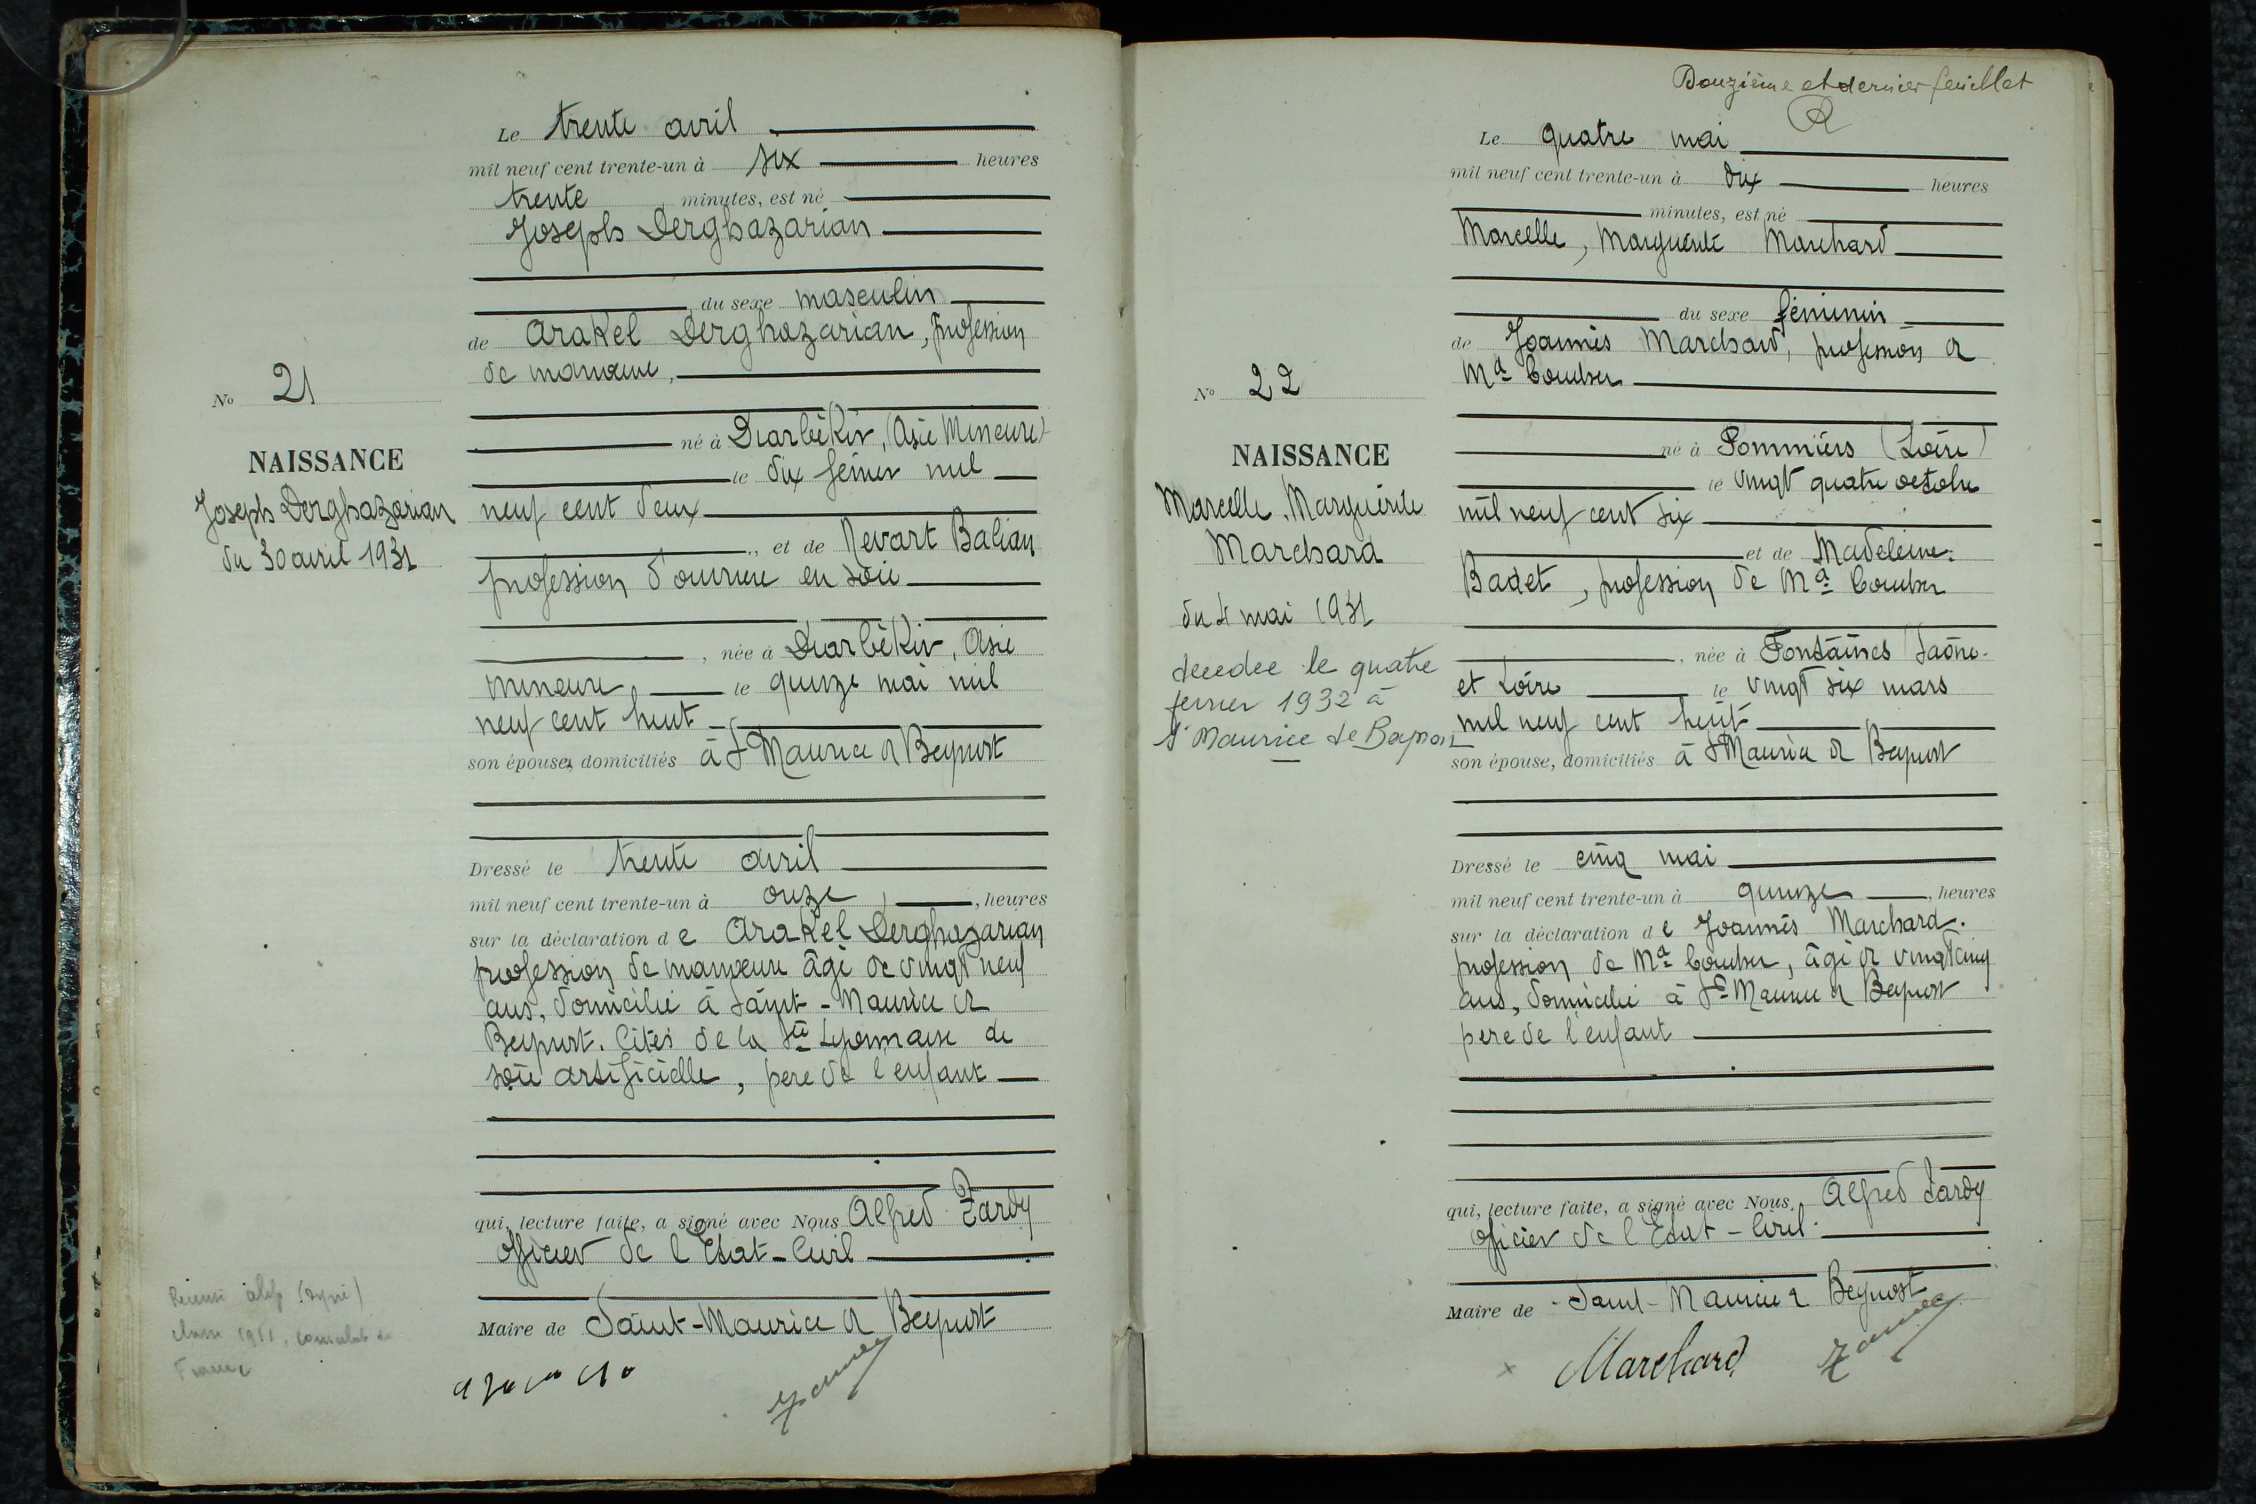 Le trente avril
mil neuf cent trente-un à six heures
trente minutes, est né
Joseph Derghazarian
du sexe masculin
de Arakel Derghazarian, profession
de manœuvre,
né à Diarbékir, (Asie Mineure)
le dix février mil
neuf cent deux
et de Nevart Balian
profession d'ouvrière en soie
, née à Diarbékir, Asie
mineure le quinze mai mil
neuf cent huit
son épouse, domiciliés à St Maurice de Beynost
Dressé le trente avril
mil neuf cent trente-un à onze, heures
sur la déclaration de Arakel Derghazarian
profession de manœuvre âgé de vingt neuf
ans, domicilié à Saint-Maurice de
Beynost. Cités de la Sté Lyonnaise de
soie artificielle, père de l'enfant
qui, lecture faite, a signé avec Nous Alfred Zardy
officier de l'Etat-Civil
Maire de Saint-Maurice de Beynost
No 21
NAISSANCE
Joseph Derghazarian
du 30 avril 1931
classe 1951, consulat de
France
Douzième et dernier feuillet
Le quatre mai
mil neuf cent trente-un à dix heures
minutes, est né
Marcelle, Marguérite Marchard
du sexe féminin
de Joannès Marchard, profession de
Md Coucher
né à Pommiers (Loire)
le vingt quatre octobre
mil neuf cent six
et de Madeleine
Badet, profession de Md Coucher
, née à Fontaines Saône-
et Loire le vingt six mars
mil neuf cent huit
son épouse, domiciliés à St Maurice de Beynost
Dressé le cinq mai
mil neuf cent trente-un à quinze, heures
sur la déclaration de Joannès Marchard.
profession de Md Coucher, âgé de vingt cinq
ans, domicilié à St Maurice de Beynost
père de l'enfant
qui, lecture faite, a signé avec Nous, Alfred Zardy
officier de l'Etat-Civil.
Maire de Saint-Maurice de Beynost
Marchard
No 22
NAISSANCE
Marcelle, Marguérite
Marchard
du 4 mai 1931
decedee le quatre
fevrier 1932 à
St Maurice de Beynost